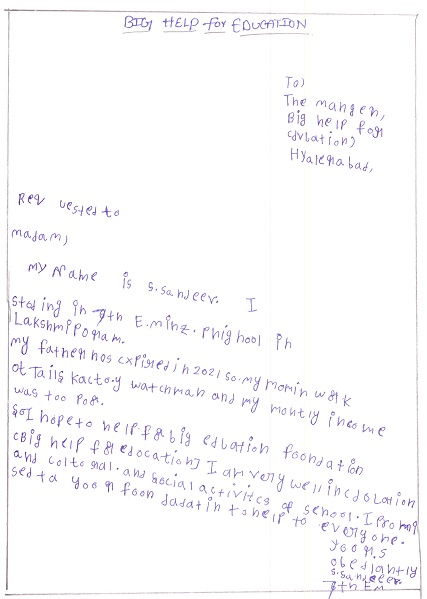 BIG HELP for EDUCATION
To)
The mangen,
Big help fon
cdulation)
Hyalenabad,
Req uested to
madam,
my Name is S.sandeer. I
stading in 9th E.minz. in
Lakshmiponam.
my fathen has expined in 2021 so. my momin work
at Tails kactony watchman and my montly income
was too Poor.
So I hope to help for big edulation foondation
(Big help for edocation) I am very well in cdolation
and coltonal. and social activites of school. I Promi
sed to yoon foon dadatin to help to everyone.
yoon.s
obediantly
S.sandeer.
9th EM